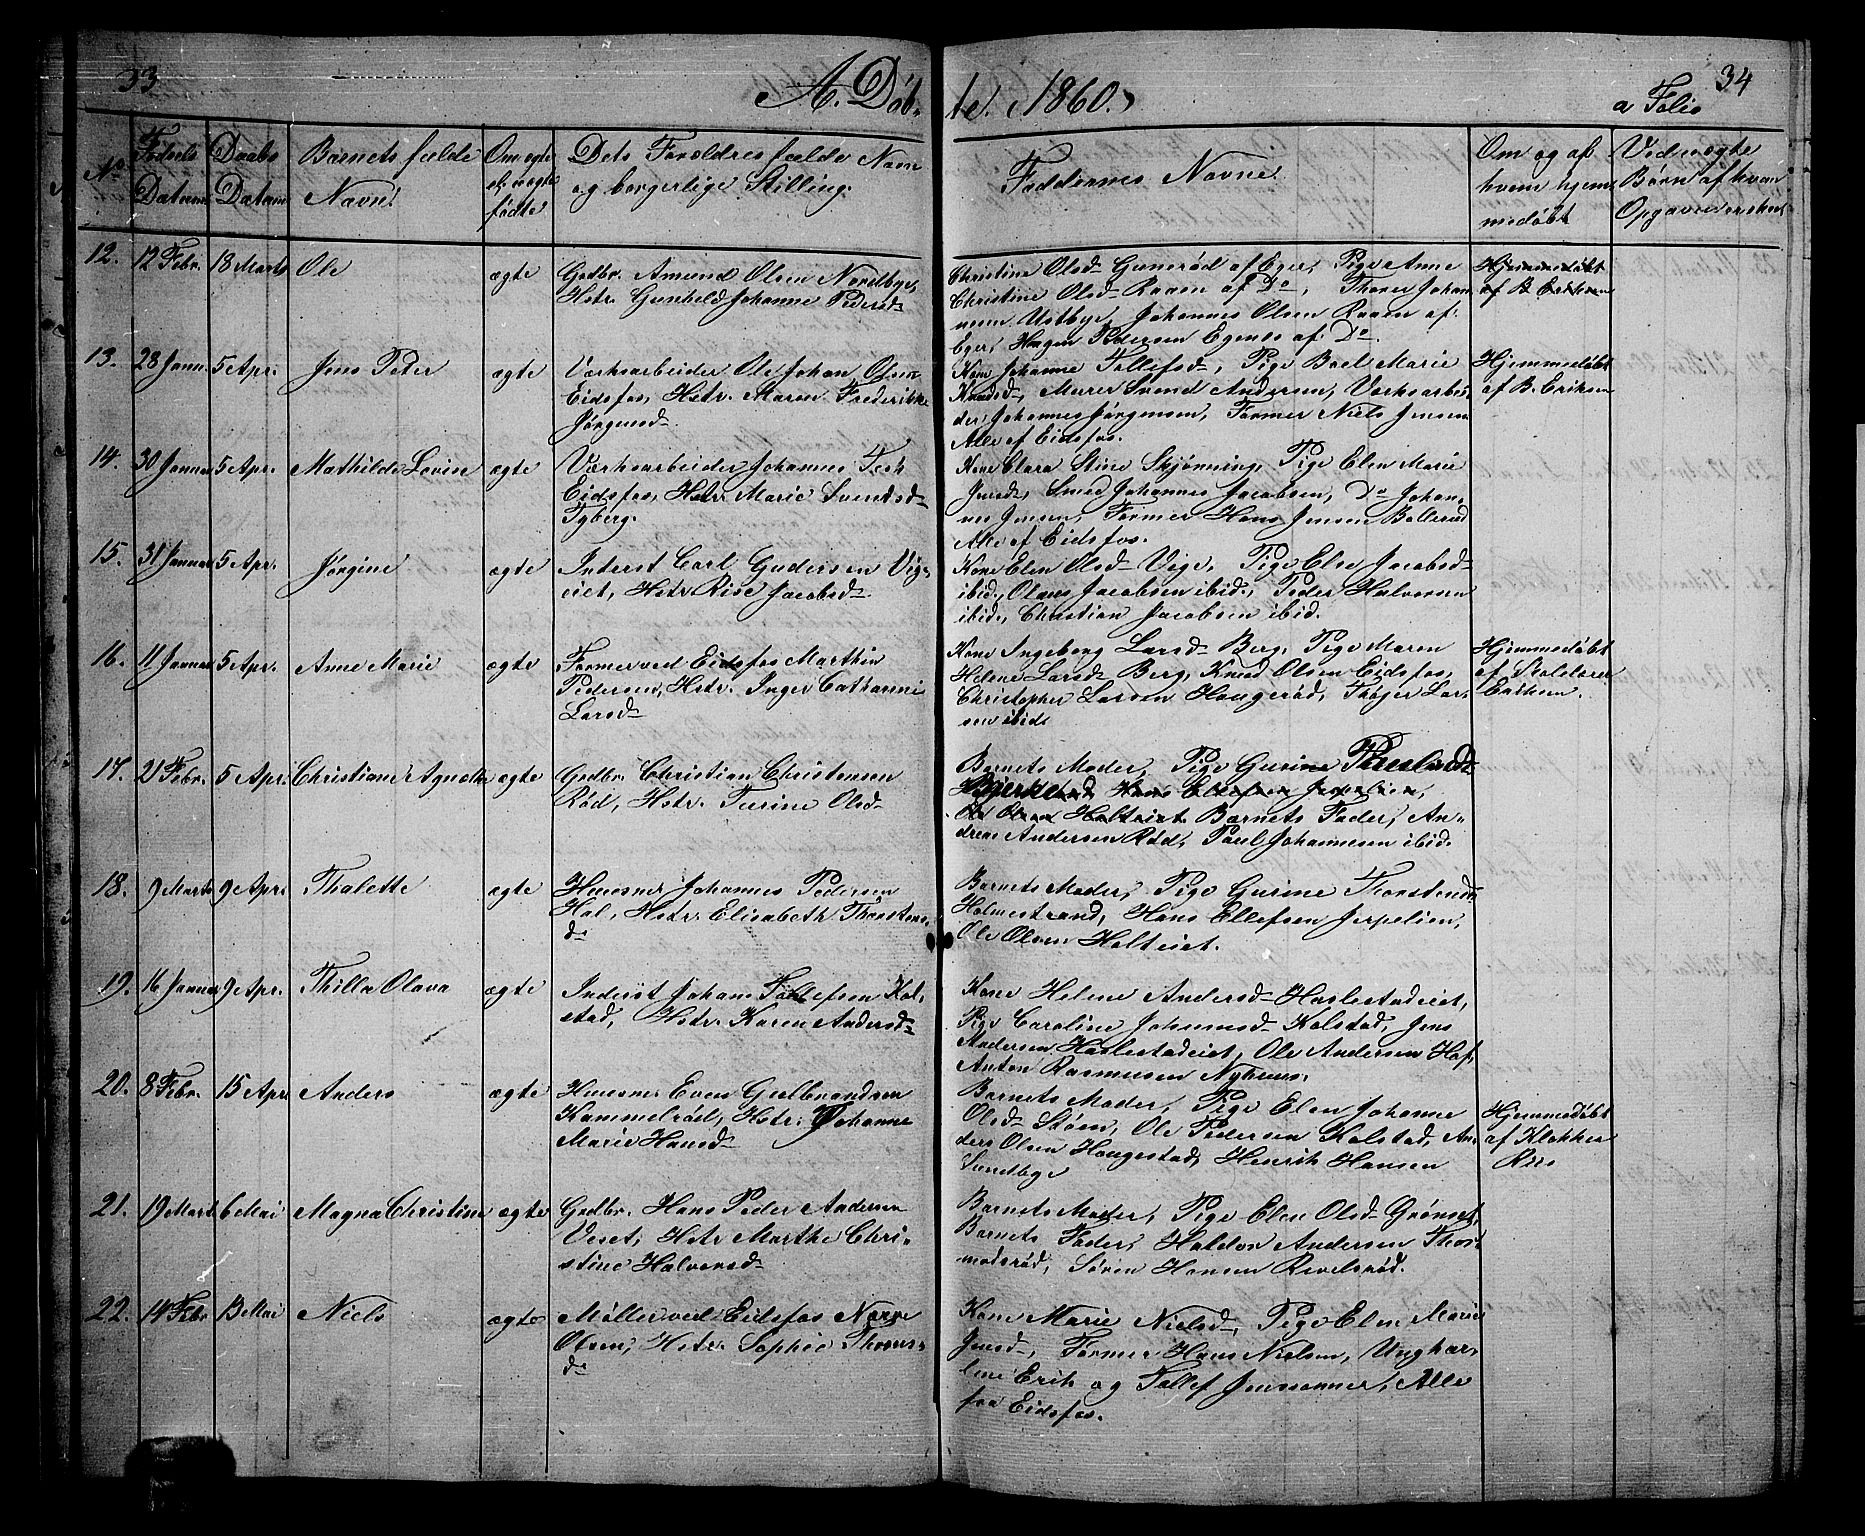 33
A. Døb-
te. 1860.
34
a Folio
No
Fødsels
Datum
Daabs
Datum
Barnets fulde
Navn.
Om ægte
el. uægte
fødte
Dets Forældres fulde Navn
og borgerlige Stilling.
Faddernes Navne.
Om og af
hvem hjem-
medøbt
Ved uægte
Børn af hvem
Opgaven er skeet
12. 12 Febr. 18 Marts Ole ægte
Gudbr. Amund Olsen Nordbye,
Hstr. Gunhild Johanne Pedersd
Christine Olsd Gunerød af Eger, Pige Anne
Christine Olsd Raaen af Do, Thorer Johan
nesen Ustbye, Johannes Olsen Raaen af
Eger, Haagen Pedersen Egenes af Do
Hjemmedøbt
af B. Eriksen
13. 28 Janu. 5 Apr. Jens Peter ægte
Værksarbeider Ole Johan Olsen
Eidsfos, Hstr. Maren Frederikke
Jørgensd
Kone Johanne Tollefsd, Pige Boel Marie
Knudsd, Murer Svend Andersen, Værksarbei
der Johannes Jørgensen, Former Niels Jensen
Alle af Eidsfos.
Hjemmedøbt
af B. Eriksen
14. 30 Januar 5 Apr. Mathilde Lovise ægte
Værksarbeider Johannes Tesk
Eidsfos, Hstr Marie Svendsd
Tyberg.
Kone Clara Stine Skjønning, Pige Elen Marie
Jensd, Smed Johannes Jacobsen, Do Johan
nes Jensen, Former Hans Jensen Bollerud
Alle af Eidsfos.
15. 31 Januar 5 Apr. Jørgine ægte
Inderst Carl Gudersen Vig-
eiet, Hstr Rise Jacobsd
Kone Elen Olsd Vige, Pige Else Jacobsd
ibid., Olaus Jacobsen ibid., Peder Halvorsen
ibid., Christian Jacobsen ibid.
16. 11 Januar 5 Apr. Anne Marie ægte
Former ved Eidsfos Marthin
Pedersen, Hstr. Inger Cathrine
Larsd
Kone Ingeborg Larsd Berg, Pige Maren
Helene Larsd Berg, Knud Olsen Eidsfos,
Christopher Larsen Haugerød, Thøger Lar-
sen ibid
Hjemmedøbt
af Skolelærer
Eriksen.
17. 21 Febr. 5 Apr. Christiane Agnethe ægte
Gudbr. Christian Christensen
Rød, Hstr. Turine Olsd
Barnets Moder, Pige Gurine
Hans Ellefsen Jerpelien,
Ole Olsen Holteiet Barnets Fader, An-
dreas Andersen Rød, Paul Johannesen ibid.
18. 9 Marts 9 Apr. Thalette ægte
Huusm. Johannes Pedersen
Hol, Hstr. Elisabeth Thorstens
d
Barnets Moder, Pige Gurine Thorstensd
Holmestrand, Hans Ellefsen Jerpelien,
Ole Olsen Holteiet.
19. 16 Januar 9 Apr. Thilla Olava ægte
Inderst Johan Tollefsen Kol-
stad, Hstr. Karen Andersd
Kone Helene Andersd Haslestadeiet,
Pige Caroline Johannesd Kolstad, Jens
Andersen Haslestadeiet, Ole Andersen Hof,
Anton Rasmusen Nyhuus.
20. 8 Febr. 15 Apr. Anders ægte
Huusm. Even Gulbrandsen
Kammelrød, Hstr. Johanne
Marie Hansd
Barnets Moder, Pige Elen Johanne
Olsd Støen, Ole Pedersen Kolstad, An
ders Olsen Haugestad, Henrik Hansen
Sundbye
Hjemmedøbt
af Klokker
Riis
21. 19 Marts 6 Mai Magna Christine ægte
Gudbr. Hans Peder Andersen
Veset, Hstr Marthe Chri-
stine Halvorsd
Barnets Moder, Pige Elen Olsd Grønset,
Barnets Fader, Haldor Andersen Thor-
modsrød, Søren Hansen Revelsrød.
22. 14 Febr 13 Mai Niels ægte
Møller ved Eidsfos Narve
Olsen, Hstr. Sophie Thorers-
d
Kone Marie Nielsd, Pige Elen Marie
Jensd, Former Hans Nielsen, Ungkar-
lene Erik og Tollef Jenssønner, Alle
fra Eidsfos.